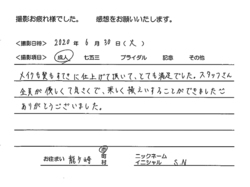 撮影お疲れ様でした。 感想をお願いいたします。
<撮影日時> 2020年 6月 30日 (火)
<撮影項目> 成人 七五三 ブライダル 記念 その他
メイクも髪もすてきに仕上げて頂いて、とても満足でした。スタッフさん
全員が優しくて良さくて、楽しく撮えいすることができました
ありがとうございました。
お住まい 龍ケ崎 市 町 村 ニックネーム イニシャル S.N